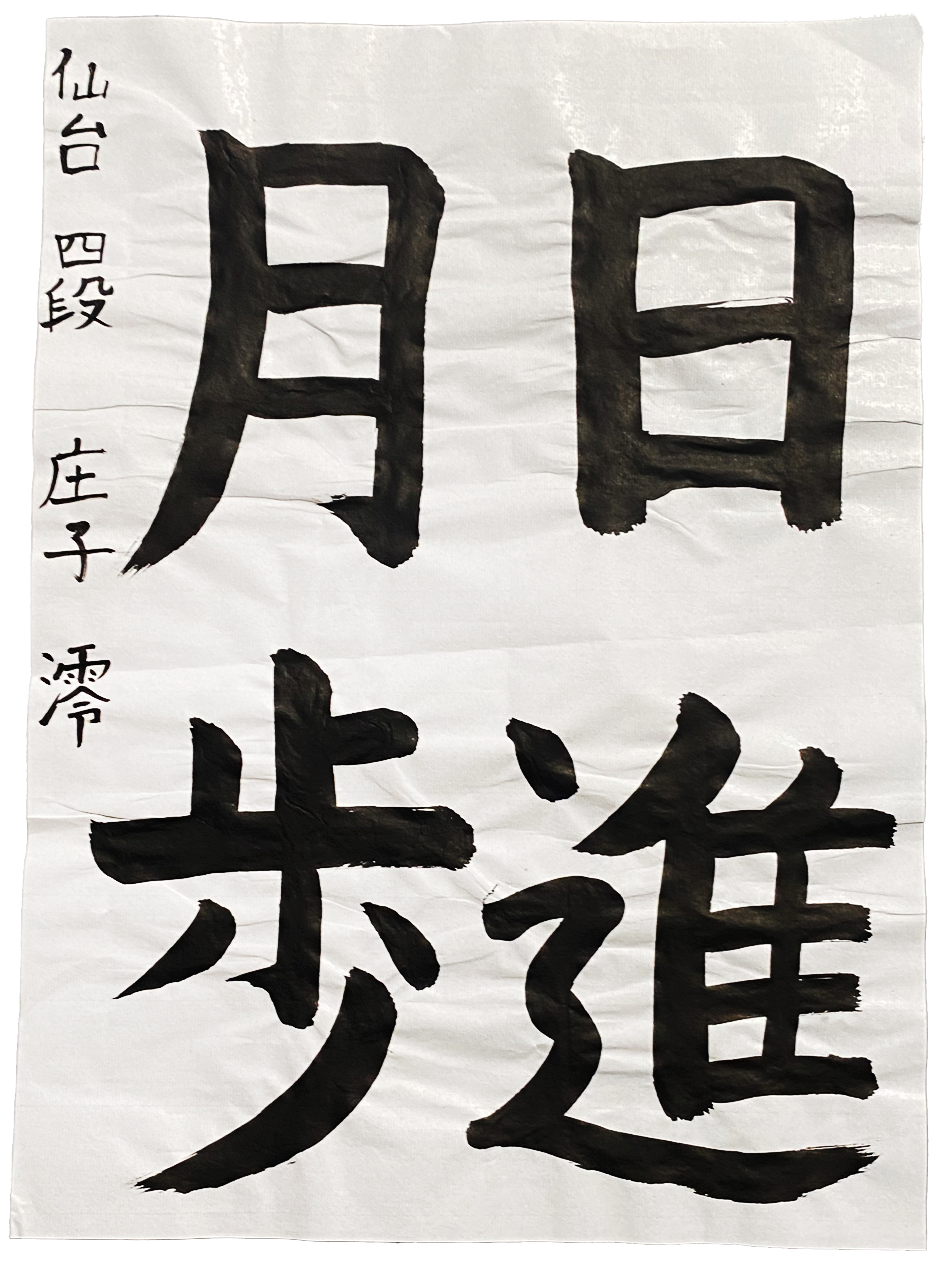 日進
月歩
仙台 四段 庄子 澪